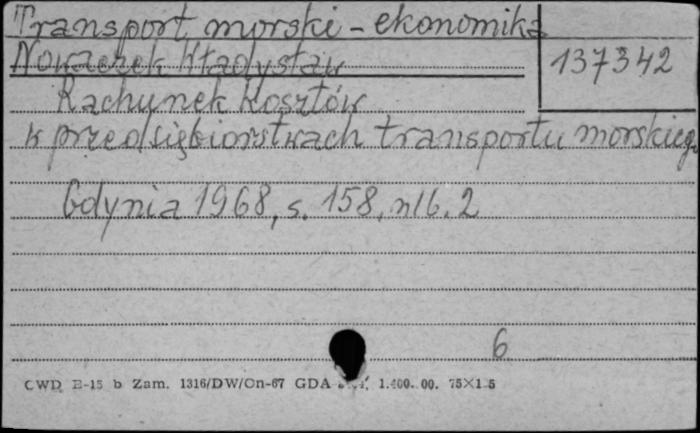 Transport morski - ekonomika
Nowaczek Władysław
137342
Rachunek kosztów
w przedsiębiorstwach transportu morskieg.
Gdynia 1968, s. 158, nlb. 2
6
CWD E-15 b Zam. 1316/DW/On-67 GDA 1.400. 00. 75×1 5